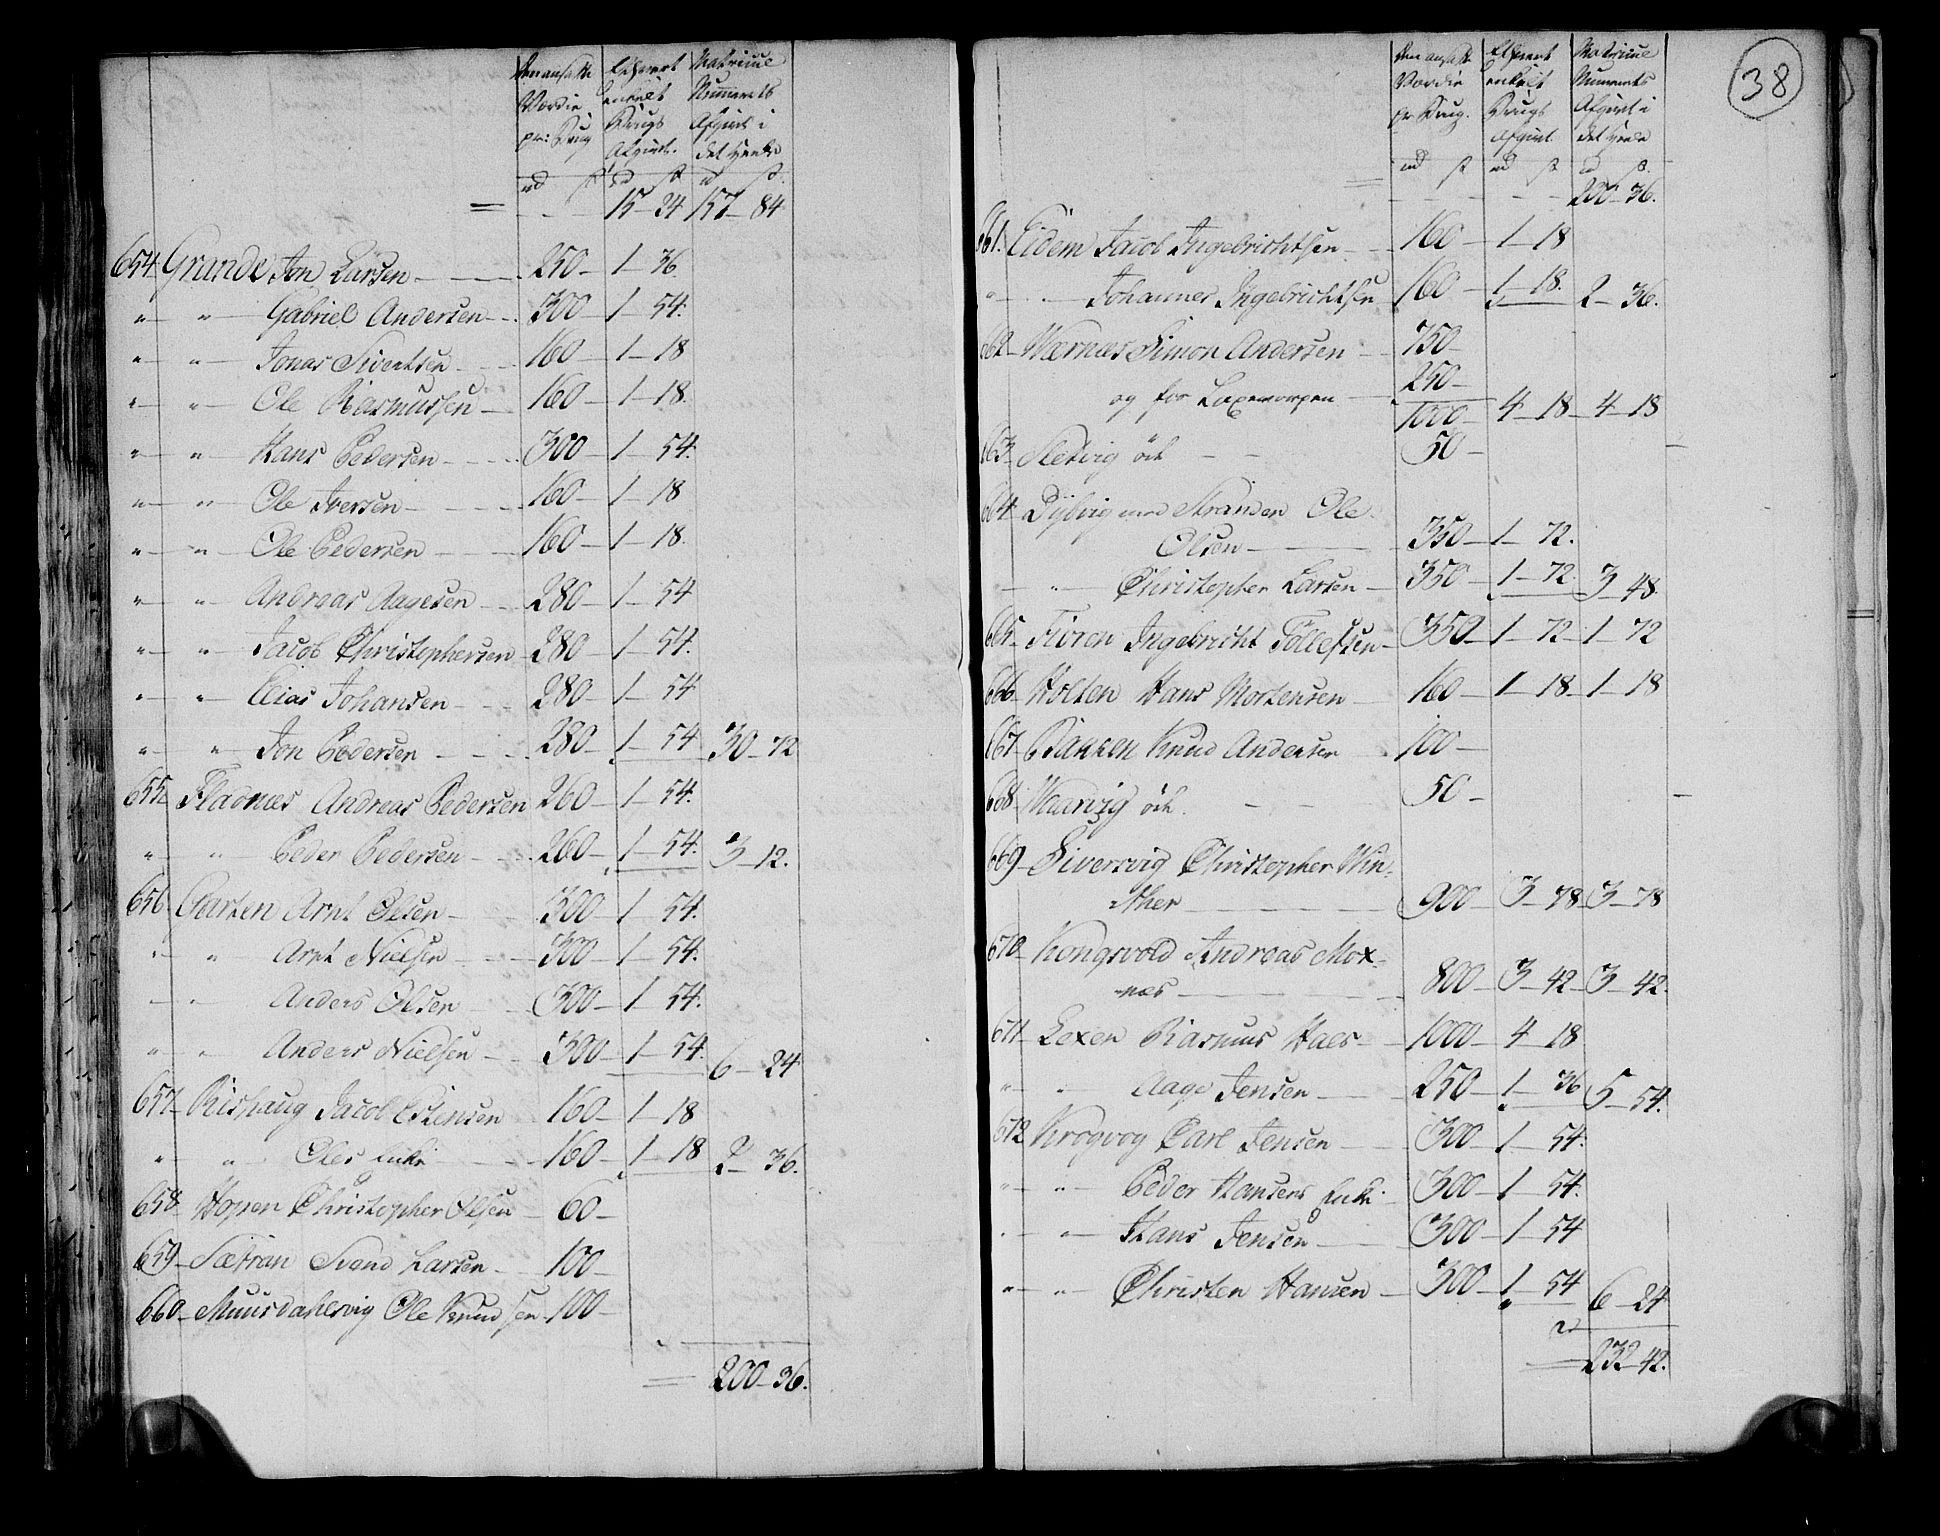 38
Den ansatte Værdie pr: Brug
Ethvert enkelt Brugs Afgivt.
Matricul Numerets Afgivt i det heele
rd s rd s rd s
= - - 15 - 24 157 - 84
654 Grande Jon Larsen - 250 - 1 - 36
" " Gabriel Andersen - 300 - 1 - 54.
" " Jonas Sivertsen - 160 - 1 - 18
" " Ole Rasmussen - 160 - 1 - 18.
" " Hans Pedersen - 300 - 1 - 54.
" " Ole Iversen - 160 - 1 - 18
" " Ole Pedersen - 160 - 1 - 18.
" " Andreas Aagesen - 280 - 1 - 54
" " Jacob Christophersen 280 - 1 - 54.
" " Elias Johansen - 280 - 1 - 54
" " Jon Pedersen - 280 - 1 - 54 30 - 72
655. Fladnæs Andreas Pedersen 260 - 1 - 54.
" " Peder Pedersen - 260 - 1 - 54. 3 - 12.
656 Garten Arnt Olsen - 300 - 1 - 54.
" " Arnt Nielsen - 300 - 1 - 54.
" " Anders Olsen - 300 - 1 - 54.
" " Anders Nielsen - 300 - 1 - 54. 6 - 24
657 - Rishaug Jacob Estensen 160 - 1 - 18
" " Oles Enke - 160 - 1 - 18 2 - 36.
658 Hopen Christopher Olsen - 60 -
659 - Sætran Svend Larsen - 100 -
660 - Muusdahlsvig Ole Knudsen - 100 -
= 200 - 36.
Den ansatte Værdie pr Brug.
Ethvert enkelt Brugs Afgivt.
Matricul Numerets Afgivt i det heele
rd s rd s rd s.
= - - - - 200 - 36.
661. Eidem Jacob Ingebrichtsen - 160 - 1 - 18
" " Johannes Ingebrichtsen 160 - 1 - 18. 2 - 36.
662 - Wærnæs Simon Andersen - 750 -
og for - 250 -
1000 - 4 - 18 - 4 - 18
663 - Sletvig öde - - 50 -
664 Dybvig med Stranden Ole
Olsen - 350 - 1 - 72.
" " Christopher Larsen - 350 - 1 - 72. 3 - 48.
665 - Fioren Ingebricht Tollefsen - 350 - 1 - 72 - 1 - 72
666 Holten Hans Mortensen - 160 - 1 - 18 - 1 - 18
667 Knud Andersen - 100 -
668 öde. - - 50 -
669 - Siversvig Christopher Win-
ther - 900 - 3 - 78 - 3 - 78
670 - Kongsvold Andreas Mox-
næs - 800 - 3 - 42 - 3 - 42.
671 Lexen Rasmus Haes - 1000 - 4 - 18
" " Aage Jensen - 250 - 1 - 36 5 - 54.
672 Krogvog Carl Jensen - 300 - 1 - 54.
" " Peder Hansens Enke - 300 - 1 - 54.
" " Hans Jensen - 300 - 1 - 54
" " Christen Hansen - 300 - 1 - 54 6 - 24
= 232 - 42.